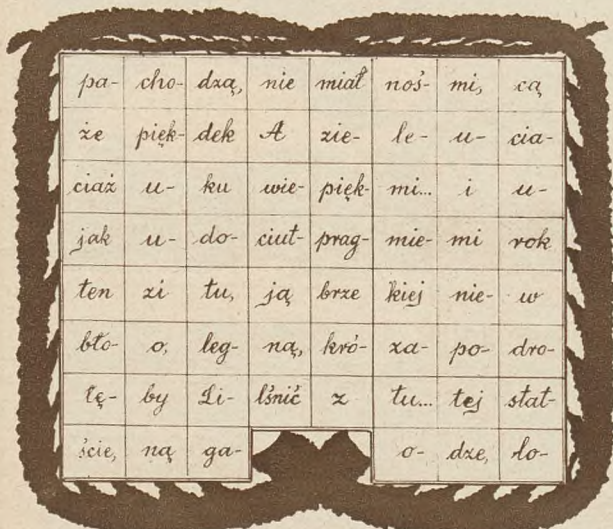 pa- cho- dzą, nie miał noś- mi, cą
że pięk- dek A zie- le- u- cia-
ciaż u- ku wie- pięk- mi... i u-
jak u- do- ciut- prag- mie- mi rok
ten zi tu, ją brze kiej nie- w
bło- o, leg- ną, kró- za- po- dro-
tę- by Li- lśnić z tu... tej stat-
ście, ną ga- o- dze, ło-